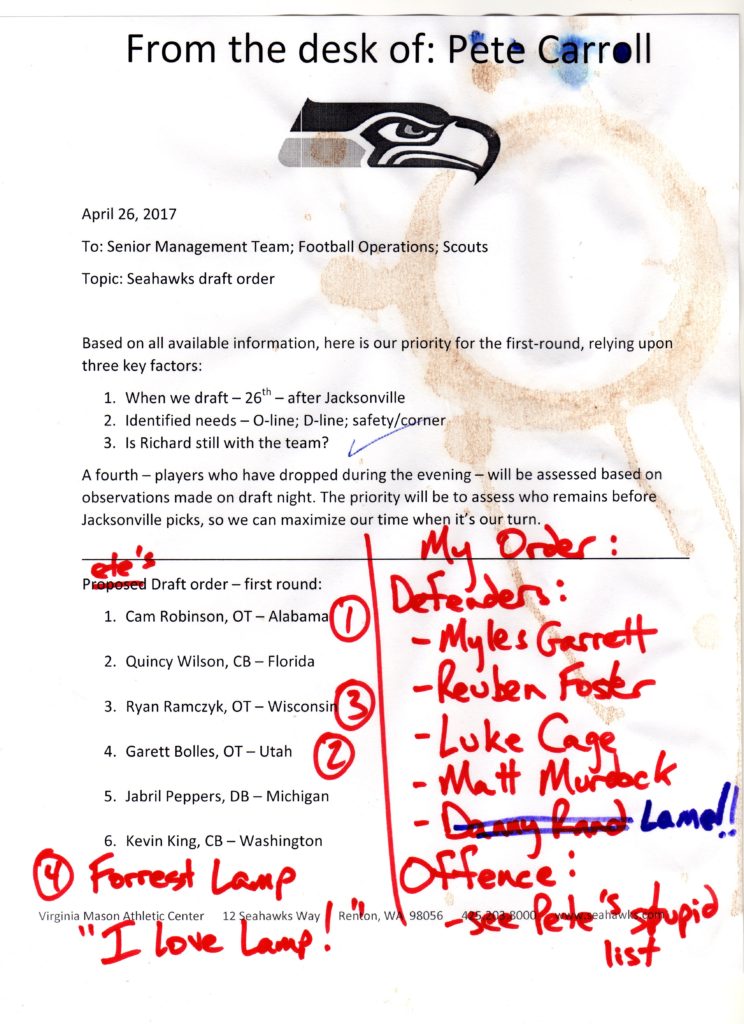 From the desk of: Pete Carroll
April 26, 2017
To: Senior Management Team; Football Operations; Scouts
Topic: Seahawks draft order
Based on all available information, here is our priority for the first-round, relying upon
three key factors:
1. When we draft – 26th – after Jacksonville
2. Identified needs – O-line; D-line; safety/corner
3. Is Richard still with the team?
A fourth – players who have dropped during the evening – will be assessed based on
observations made on draft night. The priority will be to assess who remains before
Jacksonville picks, so we can maximize our time when it's our turn.
ete's
Proposed Draft order – first round:
1. Cam Robinson, OT – Alabama 1
2. Quincy Wilson, CB – Florida
3. Ryan Ramczyk, OT – Wisconsin 3
4. Garett Bolles, OT – Utah 2
5. Jabril Peppers, DB – Michigan
6. Kevin King, CB – Washington
4 Forrest Lamp
"I love Lamp!"
My Order:
Defenders:
- Myles Garrett
- Reuben Foster
- Luke Cage
- Matt Murdock
- Danny Rand Lame!!
Offence:
- see Pete's stupid
list
Virginia Mason Athletic Center 12 Seahawks Way Renton, WA 98056 425.203.8000 www.seahawks.com